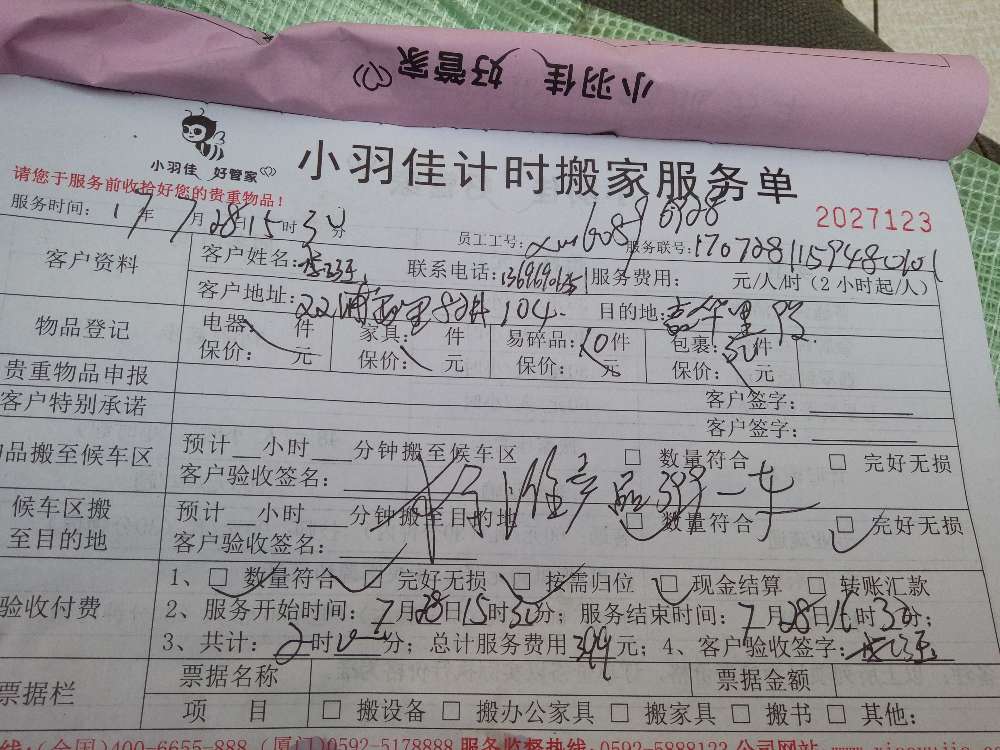 小羽佳 好管家
小羽佳 好管家
小羽佳计时搬家服务单
请您于服务前收拾好您的贵重物品!
2027123
服务时间: 17年 7月 28日 15时 30分 员工工号: 服务联号:
客户资料 客户姓名: 联系电话: 服务费用: 元/人/时(2小时起/人)
客户地址: 104 目的地:
物品登记 电器: 件 家具: 件 易碎品: 10件 包裹: 件
保价: 元 保价: 元 保价: 元 保价: 元
贵重物品申报 客户签字:
客户特别承诺 客户签字:
品搬至候车区 预计 小时 分钟搬至候车区 □ 数量符合 □ 完好无损
客户验收签名:
产品399一车
候车区搬至目的地 预计 小时 分钟搬至目的地 □ 数量符合 □ 完好无损
客户验收签名:
验收付费 1、□ 数量符合 □ 完好无损 □ 按需归位 □ 现金结算 □ 转账汇款
2、服务开始时间: 7月28日15时30分; 服务结束时间: 7月28日16时30分;
3、共计: 2时 分; 总计服务费用399元; 4、客户验收签字:
票据栏 票据名称 票据金额
项 目 □ 搬设备 □ 搬办公家具 □ 搬家具 □ 搬书 □ 其他:
线:(全国)400-6655-888 (厦门)0592-5178888 服务监督热线:0592-5888123 公司网站: